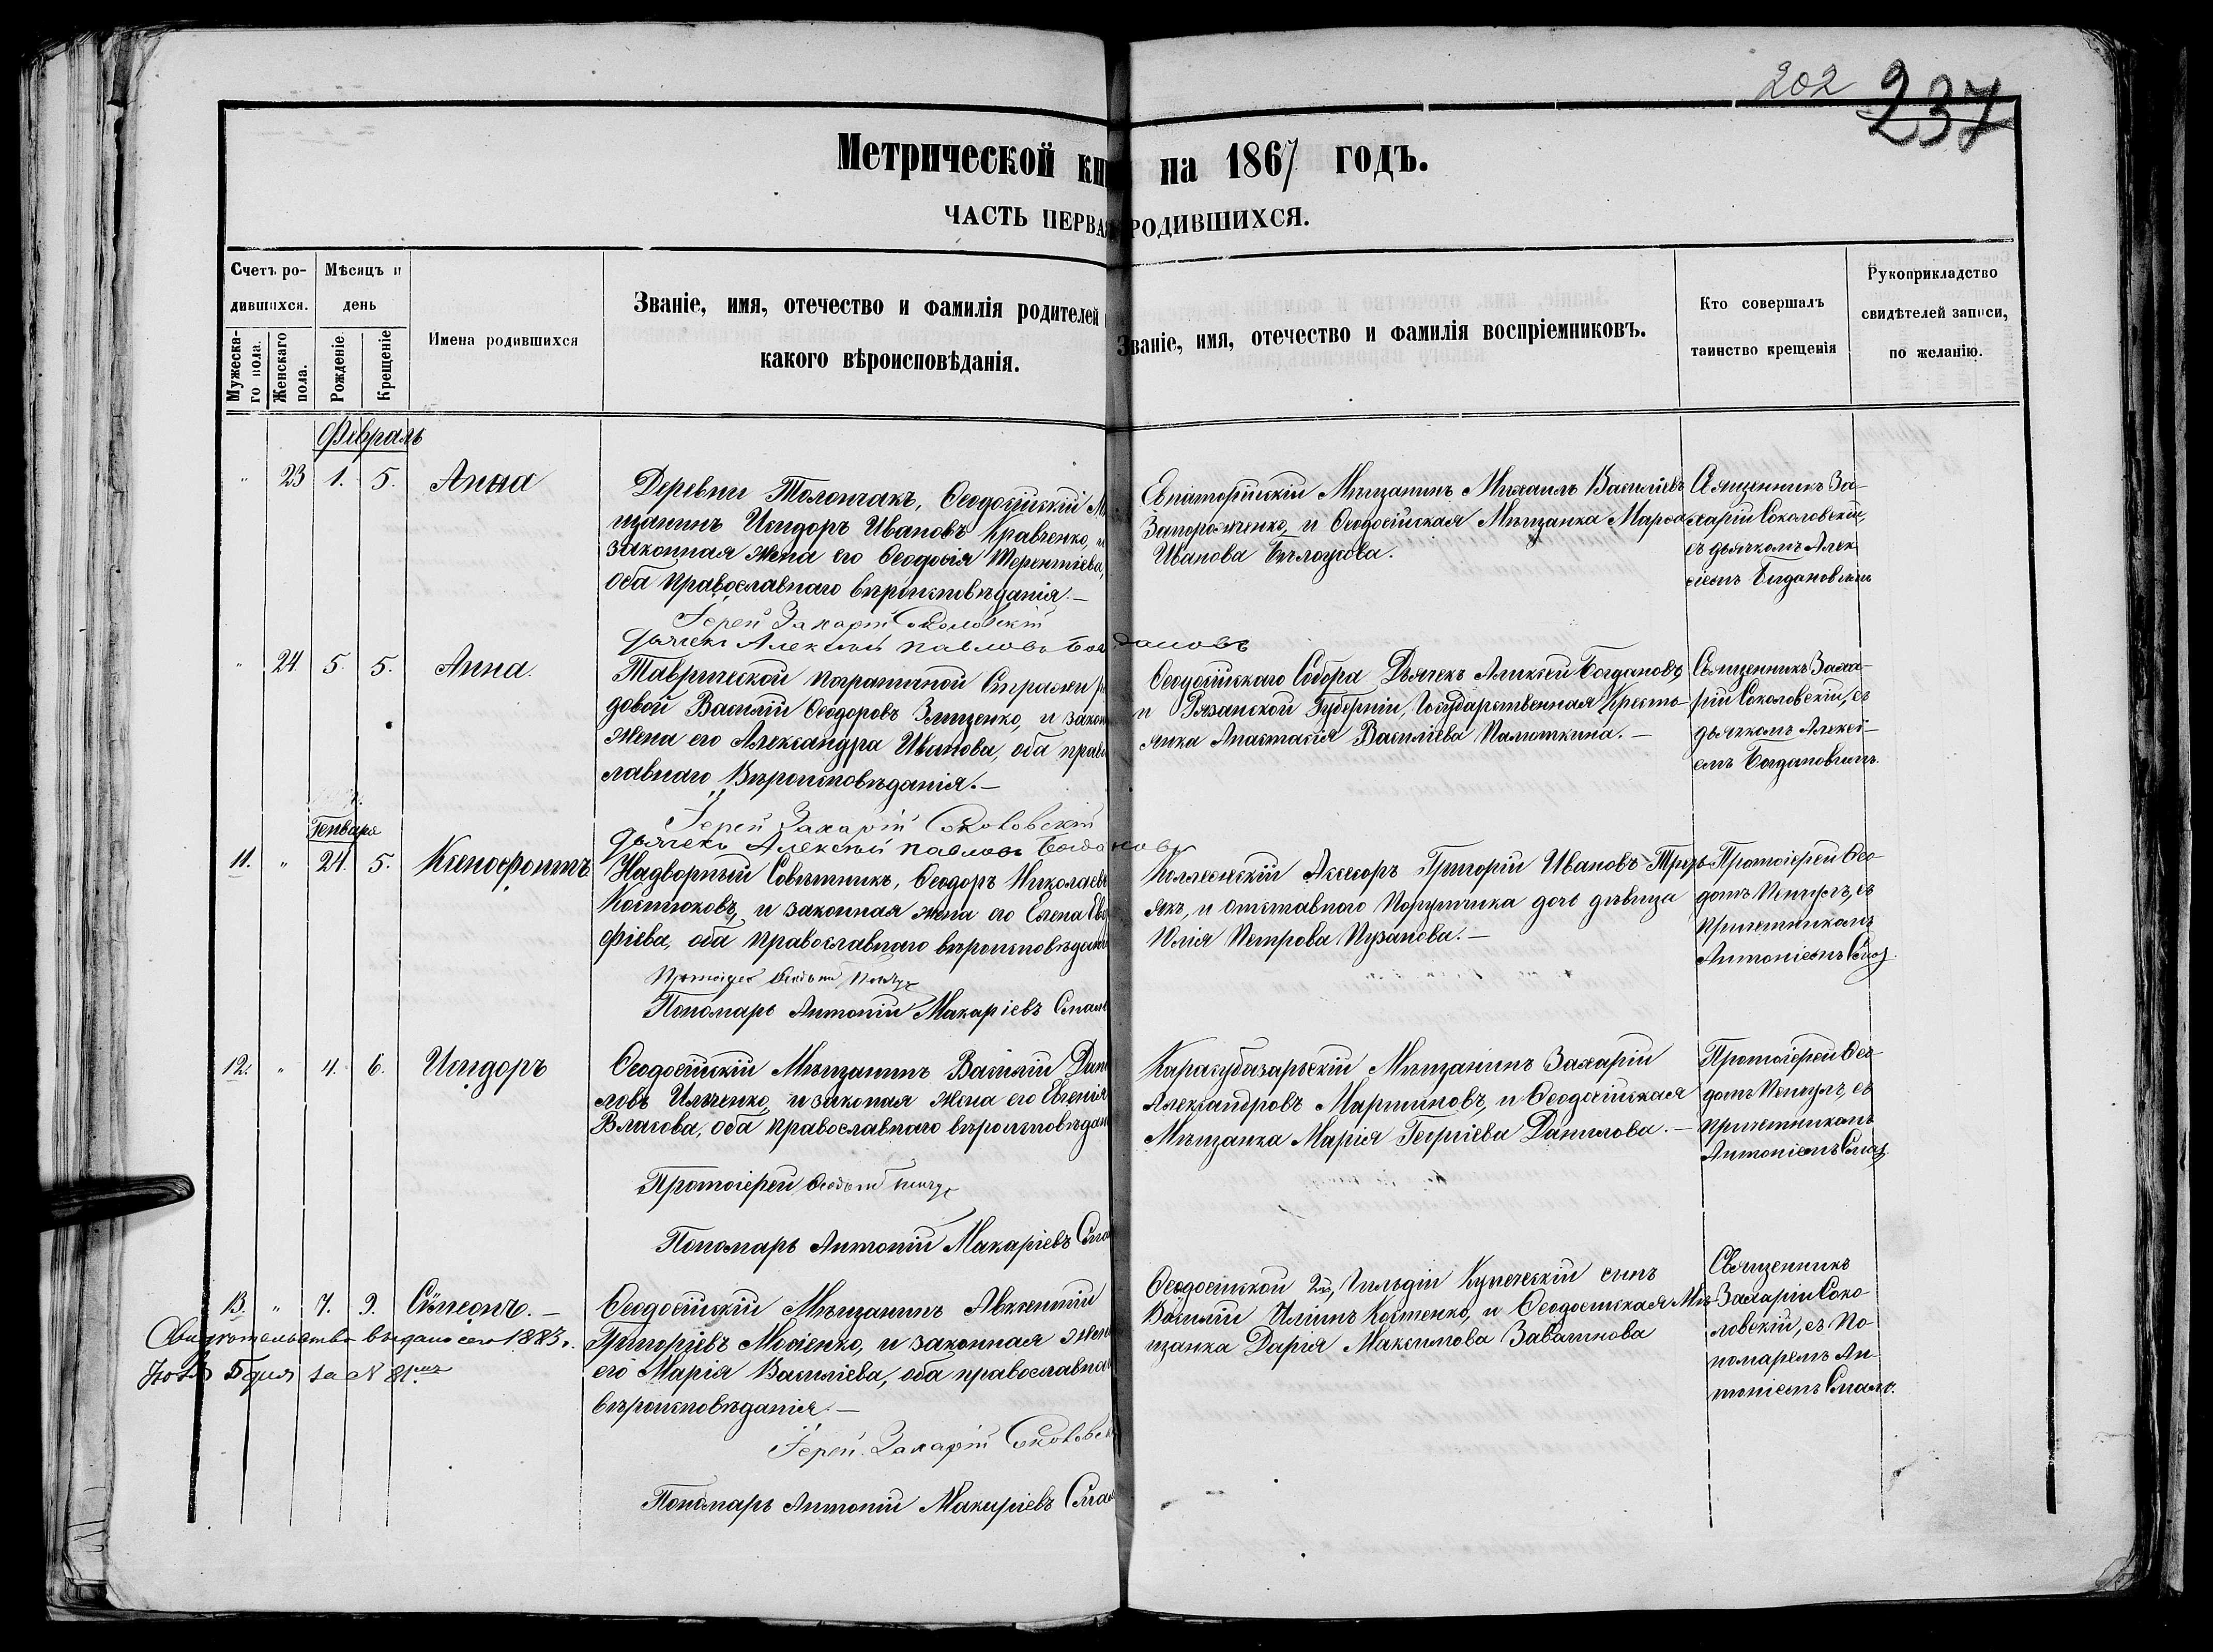 202 237
Метрической кн на 1867 годъ.
ЧАСТЬ ПЕРВАЯ РОДИВШИХСЯ.
Счетъ ро-
дившихся.
Мужеска-
го пола.
Женскаго
пола.
Мѣсяцъ и
день
Рожденіе.
Крещеніе
Имена родившихся
Званіе, имя, отечество и фамилія родителей
какого вѣроисповѣданія.
Званіе, имя, отечество и фамилія воспріемниковъ.
Кто совершалъ
таинство крещенія
Рукоприкладство
свидѣтелей записи,
по желанію.
Февраль
" 23 1. 5. Анна
Деревни Толончакъ, Ѳеодосійскій М
щанинъ Исидоръ Ивановъ Кравченко, и
законная жена его Ѳеодосія Терентіева,
оба православнаго вѣроисповѣданія.—
Іерей Захарій Соколовскій
Дьячекъ Алексѣй Павловъ Богдановъ
Евпаторійскій Мѣщанинъ Михаилъ Васильевъ
Запорожченко, и Ѳеодосійская Мѣщанка Марѳа
Иванова Бѣлоусова.
Священникъ За-
харій Соколовскій,
съ дьячкомъ Алек
сіемъ Богдановымъ
" 24. 5. 5. Анна.
Таврической пограничной Стражи ря
довой Василій Ѳеодоровъ Злищенко, и закон
жена его Александра Иванова, оба право
славнаго Вѣроисповѣданія.—
Іерей Захарій Соколовскій
Дьячекъ Алексѣй Павловъ Богдановъ
Ѳеодосійскаго Собора Дьячекъ Алексѣй Богдановъ
и Рязанской Губерніи, Государственная Кресть-
янка Анастасія Васильева Палюткина.—
Священникъ Заха-
рій Соколовскій, съ
дьячкомъ Алексі-
емъ Богдановымъ.
Генваря
11. " 24. 5. Ксенофонтъ
Надворный Совѣтникъ, Ѳеодоръ Николаевъ
Костюковъ, и законная жена его Елена Ев
фіева, оба православнаго вѣроисповѣдані
Протоіерей Ѳеодотъ
Пономарь Антоній Макаріевъ Смаг
Коллежскій Асессоръ Григорій Ивановъ Трезъ-
якъ, и отставнаго Поручика дочь дѣвица
Юлія Петрова Пузанова.—
Протоіерей Ѳео-
дотъ съ
причетникомъ
Антоніемъ
12. " 4. 6. Исидоръ
Ѳеодосійскій Мѣщанинъ Василій Дани
ловъ Ильченко, и законая жена его Евгенія
Власова, оба православнаго вѣроисповѣдан
Протоіерей Ѳеодотъ
Пономарь Антоній Макаріевъ
Карасубазарьскій Мѣщанинъ Захарій
Александровъ Мартиновъ, и Ѳеодосійская
Мѣщанка Марія Георгіева Данилова.—
Протоіерей Ѳео-
дотъ съ
причетникомъ
Антоніемъ
13. " 7. 9. Сѵмеонъ.—
Свидѣтельство выдано сего 1883 г.
5 дня за N 81
Ѳеодосійскій Мѣщанинъ Авксентій
Григоріевъ Мосіенко, и законная жен
его Марія Васильева, оба православна
вѣроисповѣданія.—
Іерей Захарій Соколовск
Пономарь Антоній Макаріевъ
Ѳеодосійской 2й, Гильдіи Купеческій сынъ
Василій Ильинъ Костенко, и Ѳеодосійская Мѣ-
щанка Дарія Максимова Завалинова
Священникъ
Захарій Соко-
ловскій, съ По-
номаремъ Ан-
тоніемъ